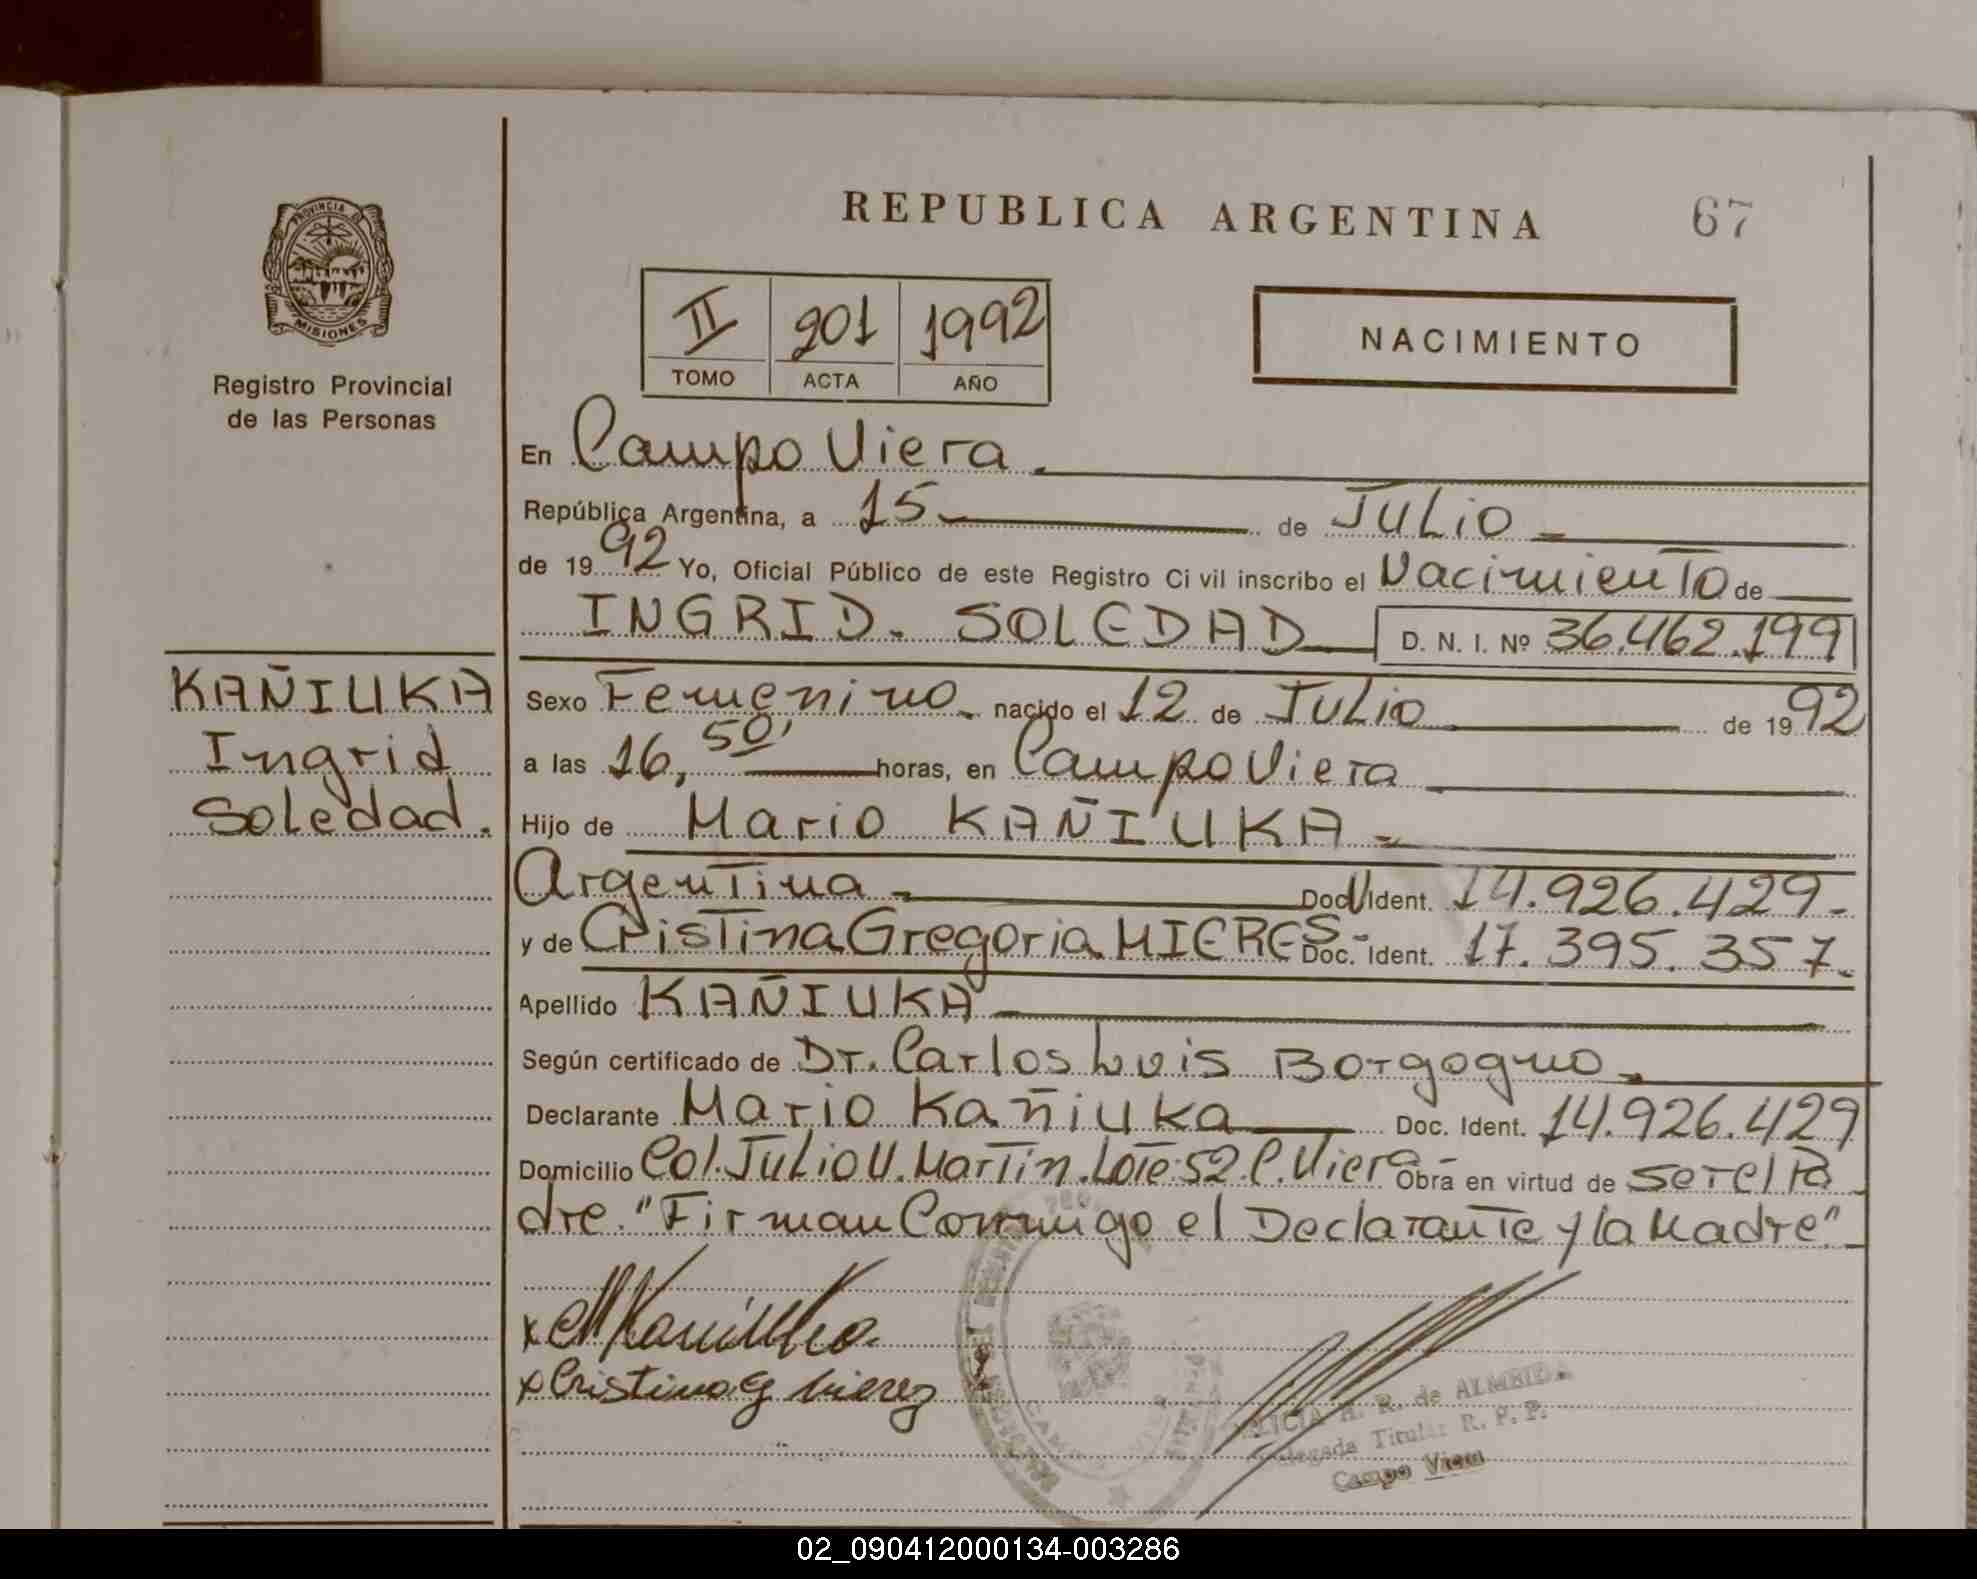 REPUBLICA ARGENTINA
67
PROVINCIA DE
MISIONES
Registro Provincial
de las Personas
II 201 1992
TOMO ACTA AÑO
NACIMIENTO
En Campo Viera
República Argentina, a 15 de Julio
de 1992 Yo, Oficial Público de este Registro Civil inscribo el Nacimiento de
INGRID. SOLEDAD D. N. I. Nº 36.462.199
KAÑIUKA
Ingrid
Soledad.
Sexo Femenino nacido el 12 de Julio de 1992
a las 16, 50' horas, en Campo Viera
Hijo de Mario KAÑIUKA
Argentina Doc. Ident. 14.926.429-
y de Cristina Gregoria MIERES- Doc. Ident. 17.395.357.
Apellido KAÑIUKA
Según certificado de Dr. Carlos Luis Borgogno
Declarante Mario Kañiuka Doc. Ident. 14.926.429
Domicilio Col. Julio U. Martin. Lote:52.C.Viera Obra en virtud de ser el Pa
dre. "Firman Conmigo el Declarante y la Madre"
x Cristina G Mierez
R. de ALMEIDA
Delegada Titular R. P. P.
Campo Viera
02_090412000134-003286